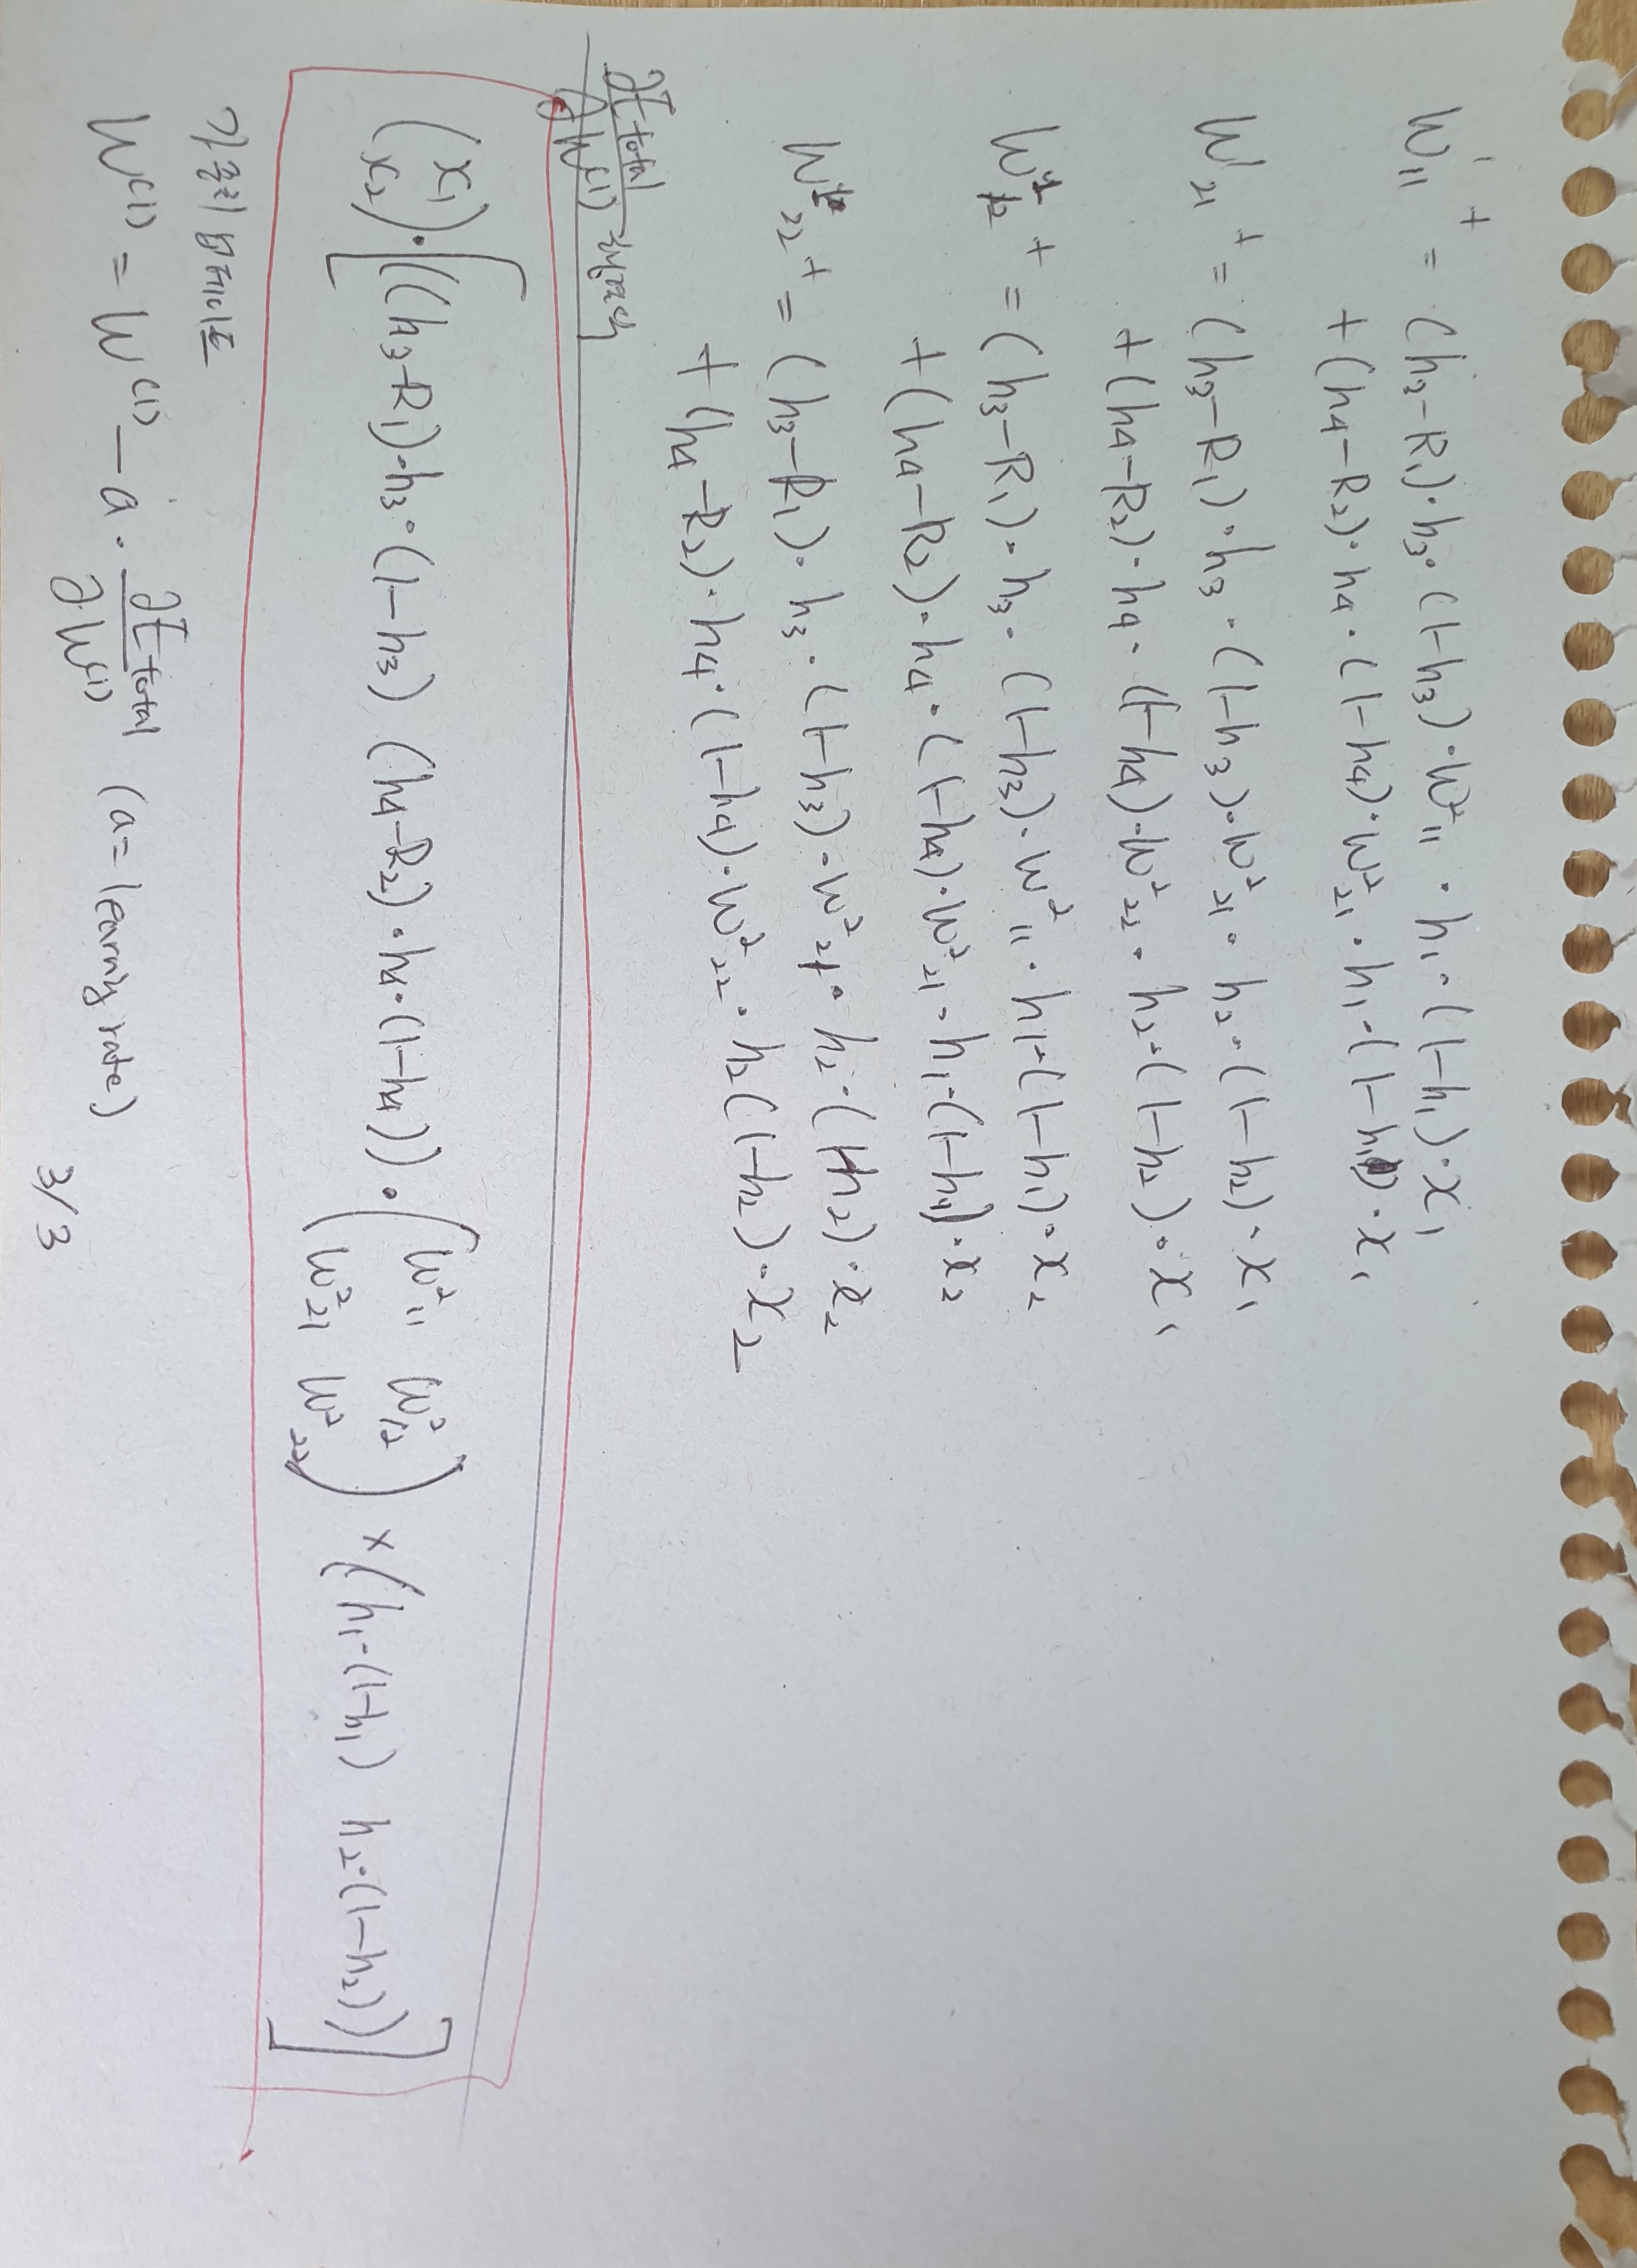 W¹₁₁⁺ = (h₃-R₁)·h₃·(1-h₃)·W²₁₁·h₁·(1-h₁)·x₁
+(h₄-R₂)·h₄·(1-h₄)·W²₂₁·h₁·(1-h₁)·x₁
W¹₂₁⁺ = (h₃-R₁)·h₃·(1-h₃)·W²₂₁·h₂·(1-h₂)·x₁
+(h₄-R₂)·h₄·(1-h₄)·W²₂₂·h₂·(1-h₂)·x₁
W¹₁₂⁺ = (h₃-R₁)·h₃·(1-h₃)·W²₁₁·h₁·(1-h₁)·x₂
+(h₄-R₂)·h₄·(1-h₄)·W²₂₁·h₁·(1-h₁)·x₂
W¹₂₂⁺ = (h₃-R₁)·h₃·(1-h₃)·W²₂₁·h₂·(1-h₂)·x₂
+(h₄-R₂)·h₄·(1-h₄)·W²₂₂·h₂(1-h₂)·x₂
∂E total / ∂W⁽¹⁾ 행렬화
(x₁ x₂)·[((h₃-R₁)·h₃·(1-h₃) (h₄-R₂)·h₄·(1-h₄))·(W²₁₁ W²₁₂ W²₂₁ W²₂₂)×(h₁·(1-h₁) h₂·(1-h₂))]
가중치 업데이트
W⁽¹⁾ = W⁽¹⁾ - a · ∂E total / ∂W⁽¹⁾ (a=learning rate)
3/3